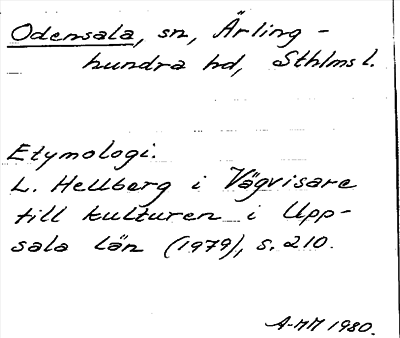 Odensala, sn, Ärling-
hundra hd, Sthlms l.
Etymologi:
L. Hellberg i Vägvisare
till kulturen i Upp-
sala län (1979), s. 210.
A-MM 1980.